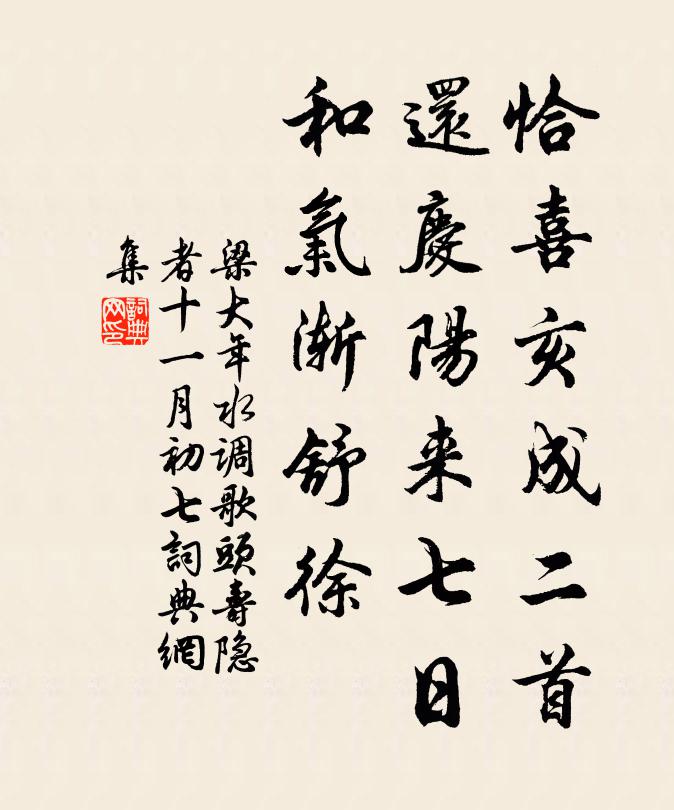 恰喜亥成二首
還慶陽来七日
和氣漸舒徐
梁大年水调歌頭壽隐
者十一月初七詞典網
集
詞典
网印